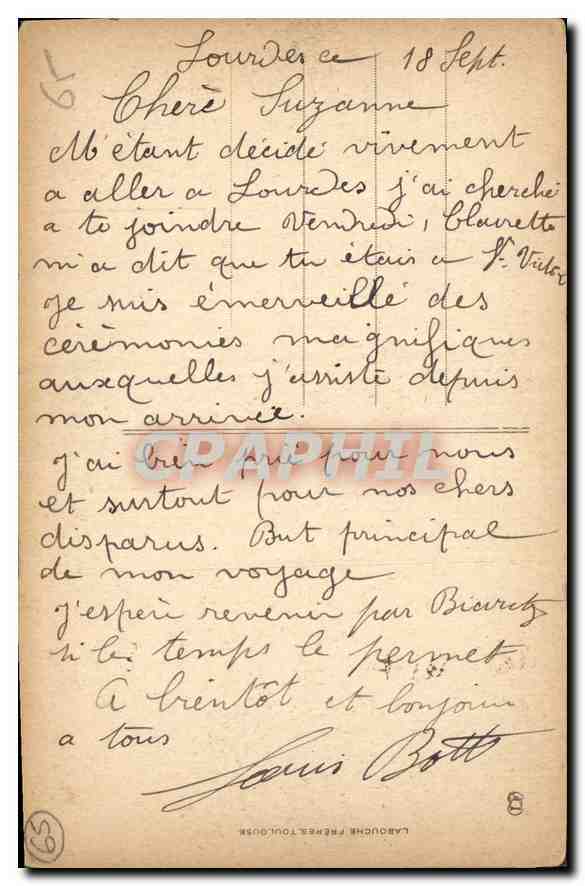 65
Lourdes ce 18 Sept.
Chère Suzanne
M'étant décidé vivement
a aller a Lourdes j'ai cherché
a te joindre Vendredi, Clairette
m'a dit que tu étais a St Victor
Je suis émerveillé des
cérémonies magnifiques
auxquelles j'assiste depuis
mon arrivée.
CPARPHIL
J'ai bien prié pour nous
et surtout pour nos chers
disparus. But principal
de mon voyage
J'espère revenir par Biaritz
si le temps le permet
A bientôt et bonjour
a tous
Louis Bott
65
LABOUCHE FRÈRES, TOULOUSE